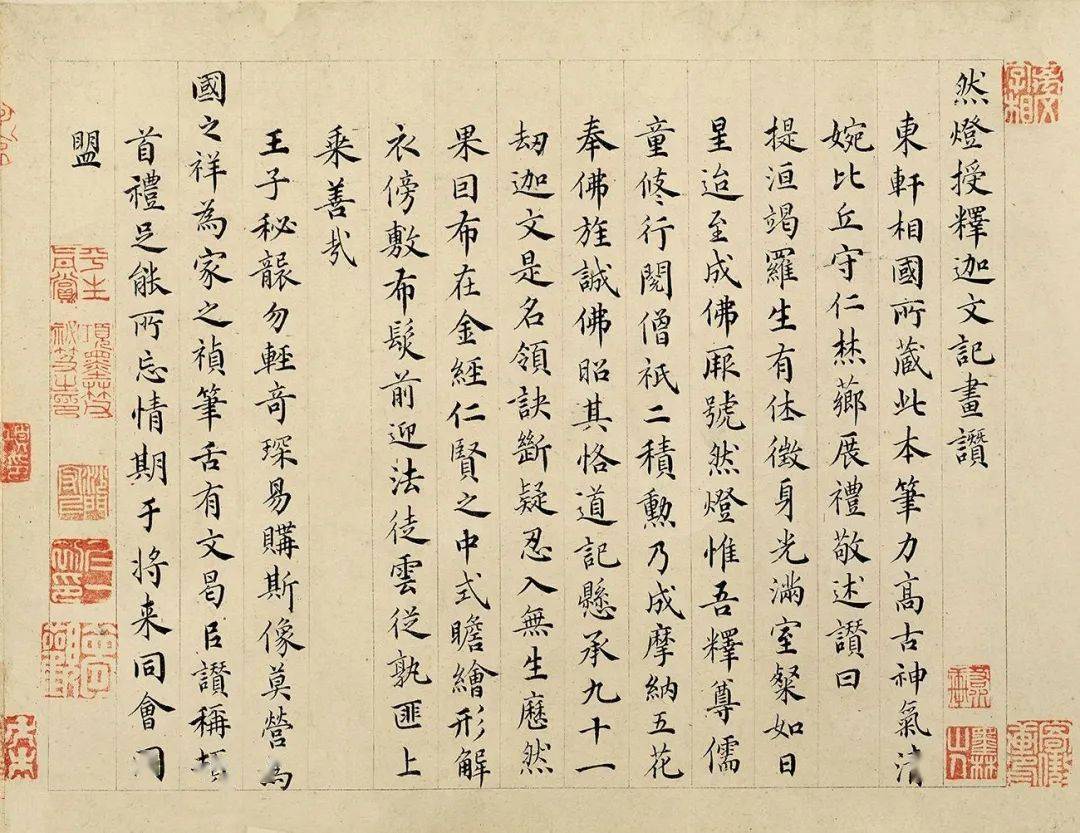 然燈授釋迦文記畫讚
東軒相國所藏此本筆力高古神氣清
婉比丘守仁焚薌展禮敬述讚曰
提洹竭羅生有休徵身光滿室粲如日
星迨至成佛厥號然燈惟吾釋尊儒
童修行閱僧祇二積勳乃成摩納五花
奉佛旌誠佛昭其恪道記懸承九十一
劫迦文是名領訣斷疑忍入無生歷然
果因布在金經仁賢之中式瞻繪形解
衣傍敷布髮前迎法徒雲從孰匪上
乘善哉
王子秘襲勿輕奇琛易購斯像莫營為
國之祥為家之禎筆舌有文曷臣讚稱
首禮足能所忘情期于將来同會同
盟
平生
真賞
項墨林